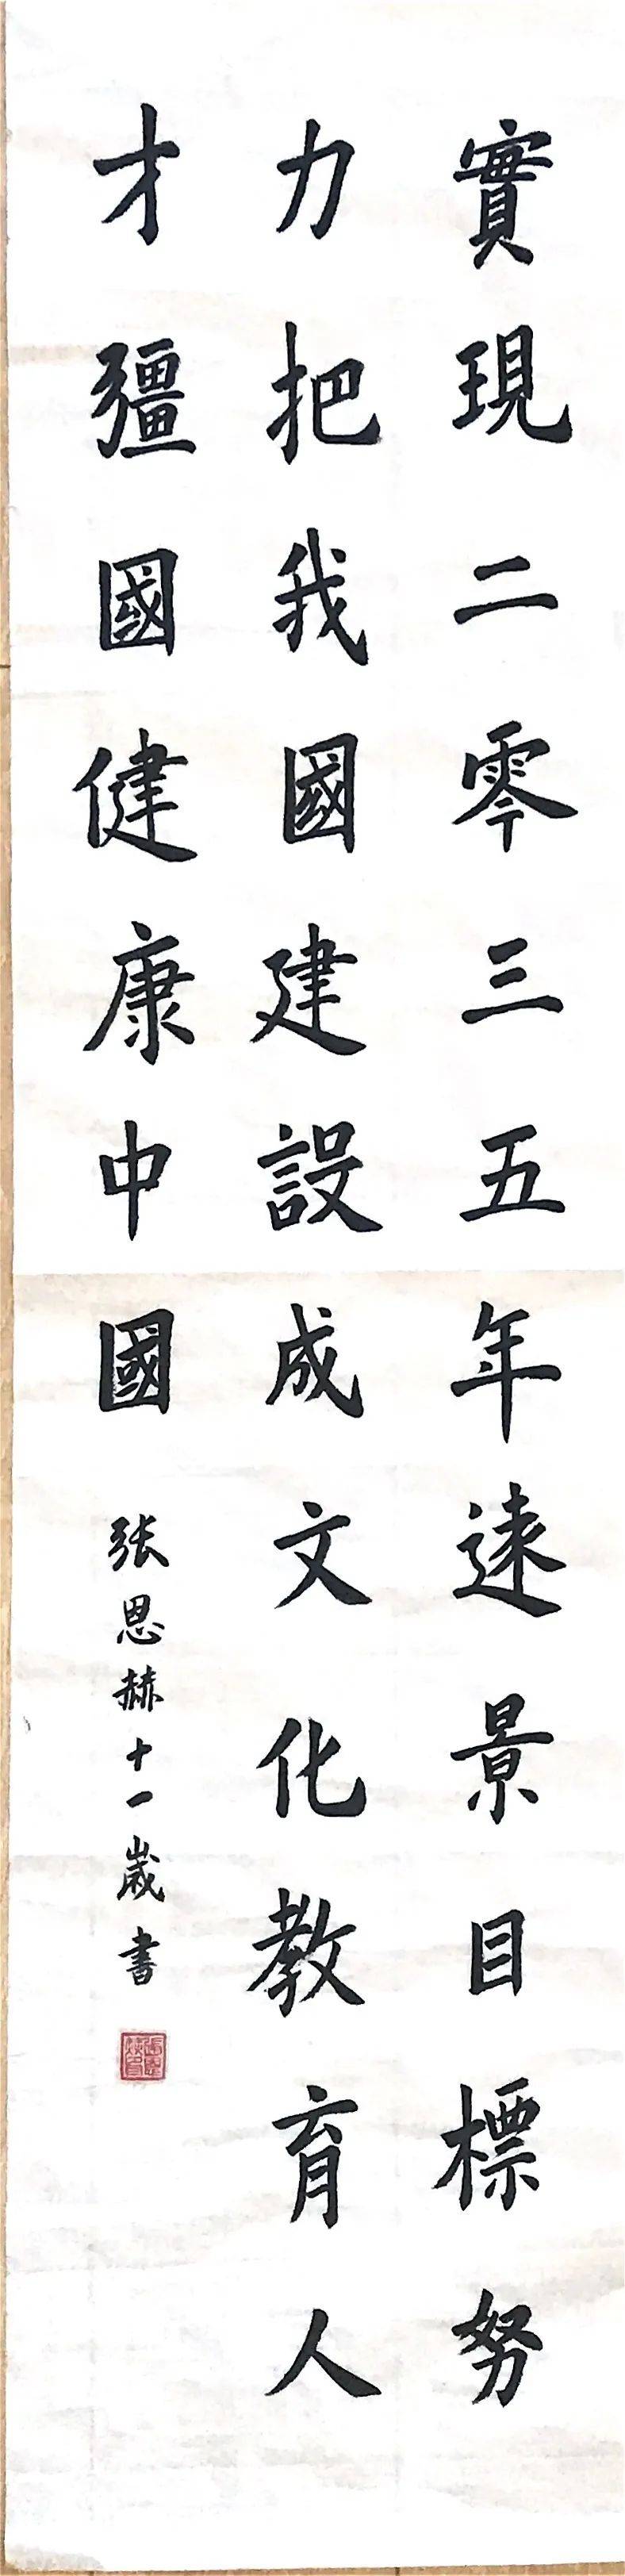 實現二零三五年遠景目標努
力把我國建設成文化教育人
才彊國健康中國
张恩赫十一歲書